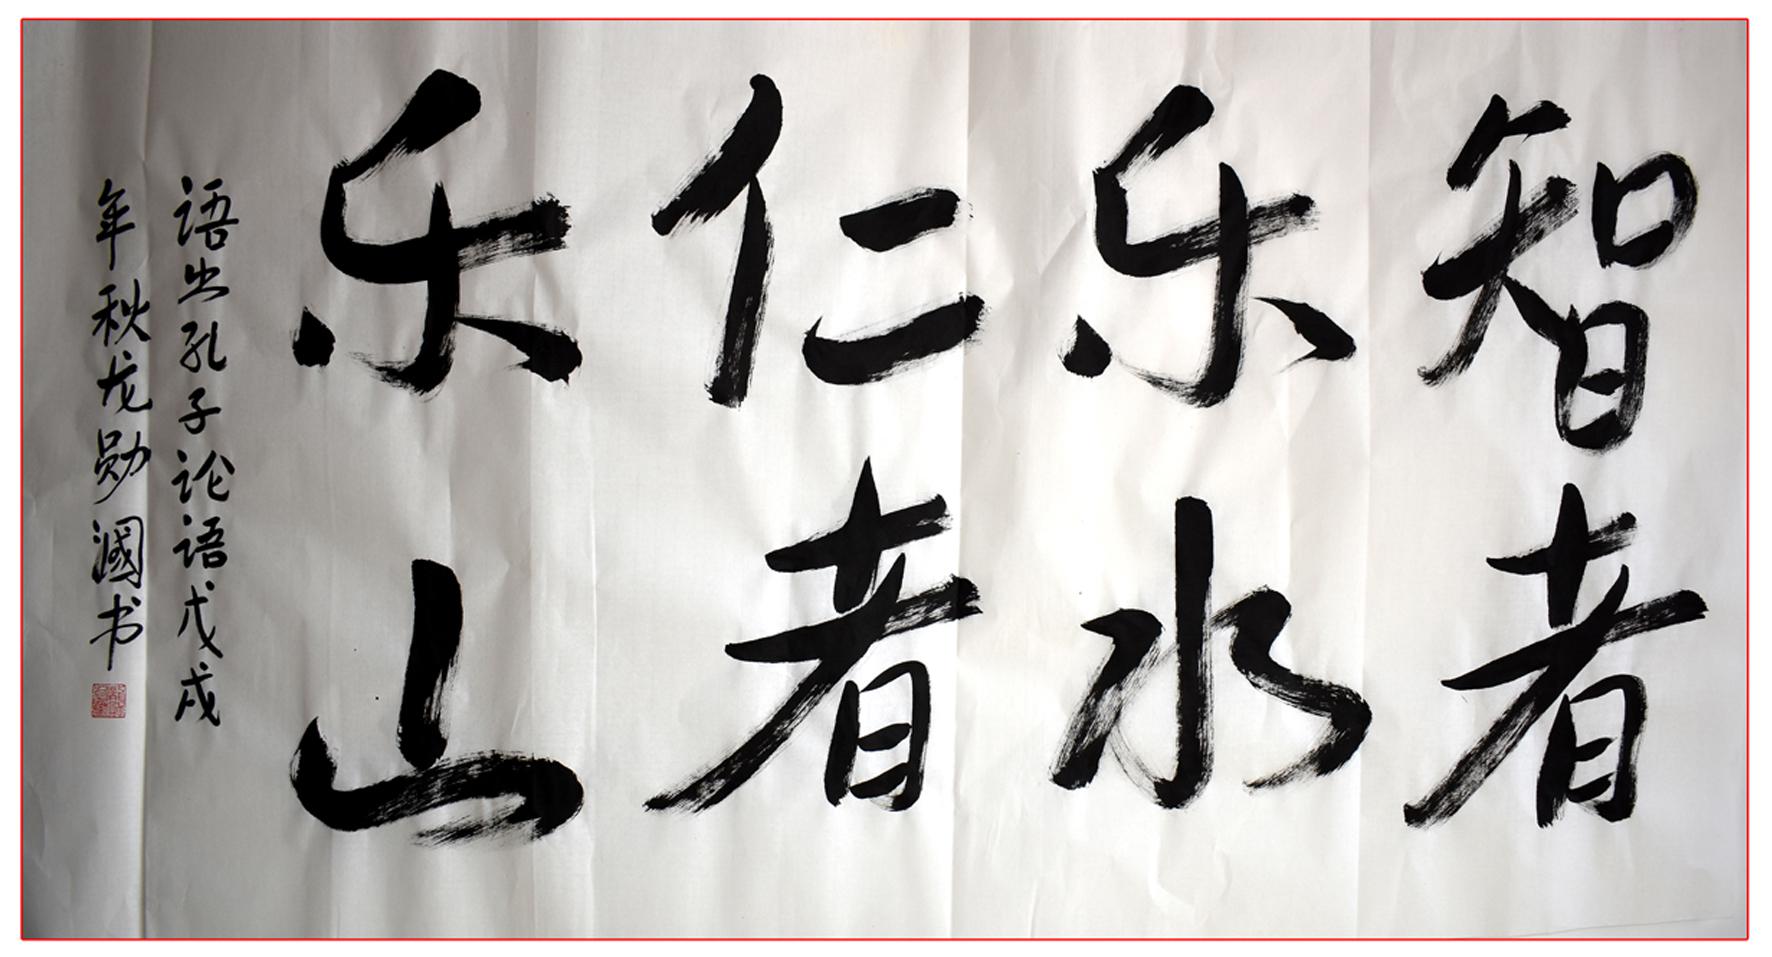 智者
乐水
仁者
乐山
语出孔子论语戊戌
年秋龙勋国书